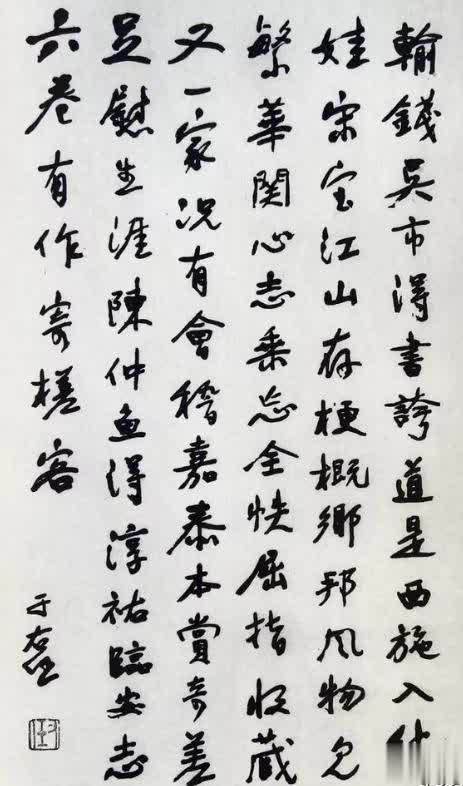 輸錢吳市得書誇道是西施入
娃宋室江山存梗概鄉邦风物見
繁華関心志乘忘全帙屈指收蔵
又一家况有會稽嘉泰本賞奇差
足慰生涯陳仲魚得淳祐臨安志
六卷有作寄槎客
于右任